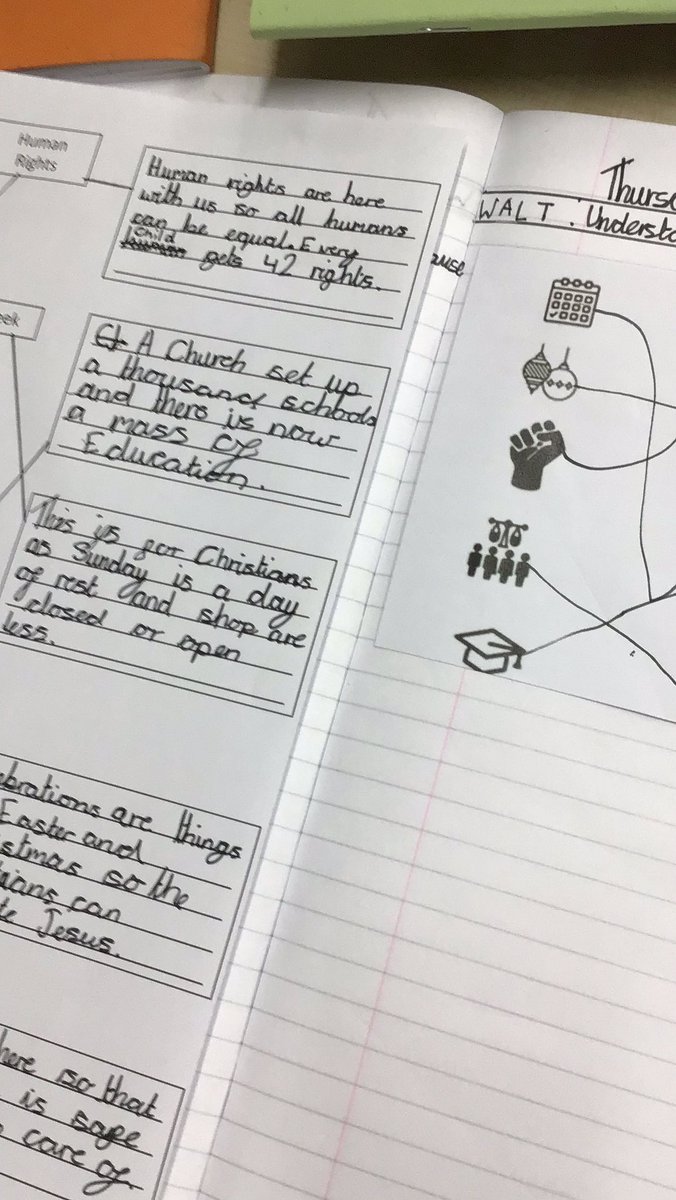 Human
Rights
Human rights are here
with us so all humans
can be equal. Every
child
gets 42 rights.
eek
A Church set up
a thousand schools
and there is now
a mass of
Education.
This is for Christians
as Sunday is a day
of rest and shop are
closed or open
less.
ebrations are things
Easter and
stmas so the
tians can
te Jesus.
here so that
is safe
care of
ause
Thurs
WALT: Understa